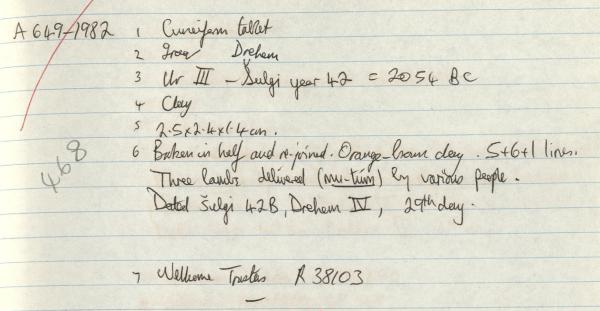 A 649-1982 1 Cuneiform tablet
2 Iraq Drehem
3 Ur III - Šulgi year 42 = 2054 BC
4 Clay
5 2.5 x 2.4 x 1.4 cm.
6 Broken in half and re-joined. Orange-brown clay. 5+6+1 lines.
Three lambs delivered (mu-túm) by various people.
Dated Šulgi 42B, Drehem IV, 29th day.
468
7 Wellcome Trustees R 38103